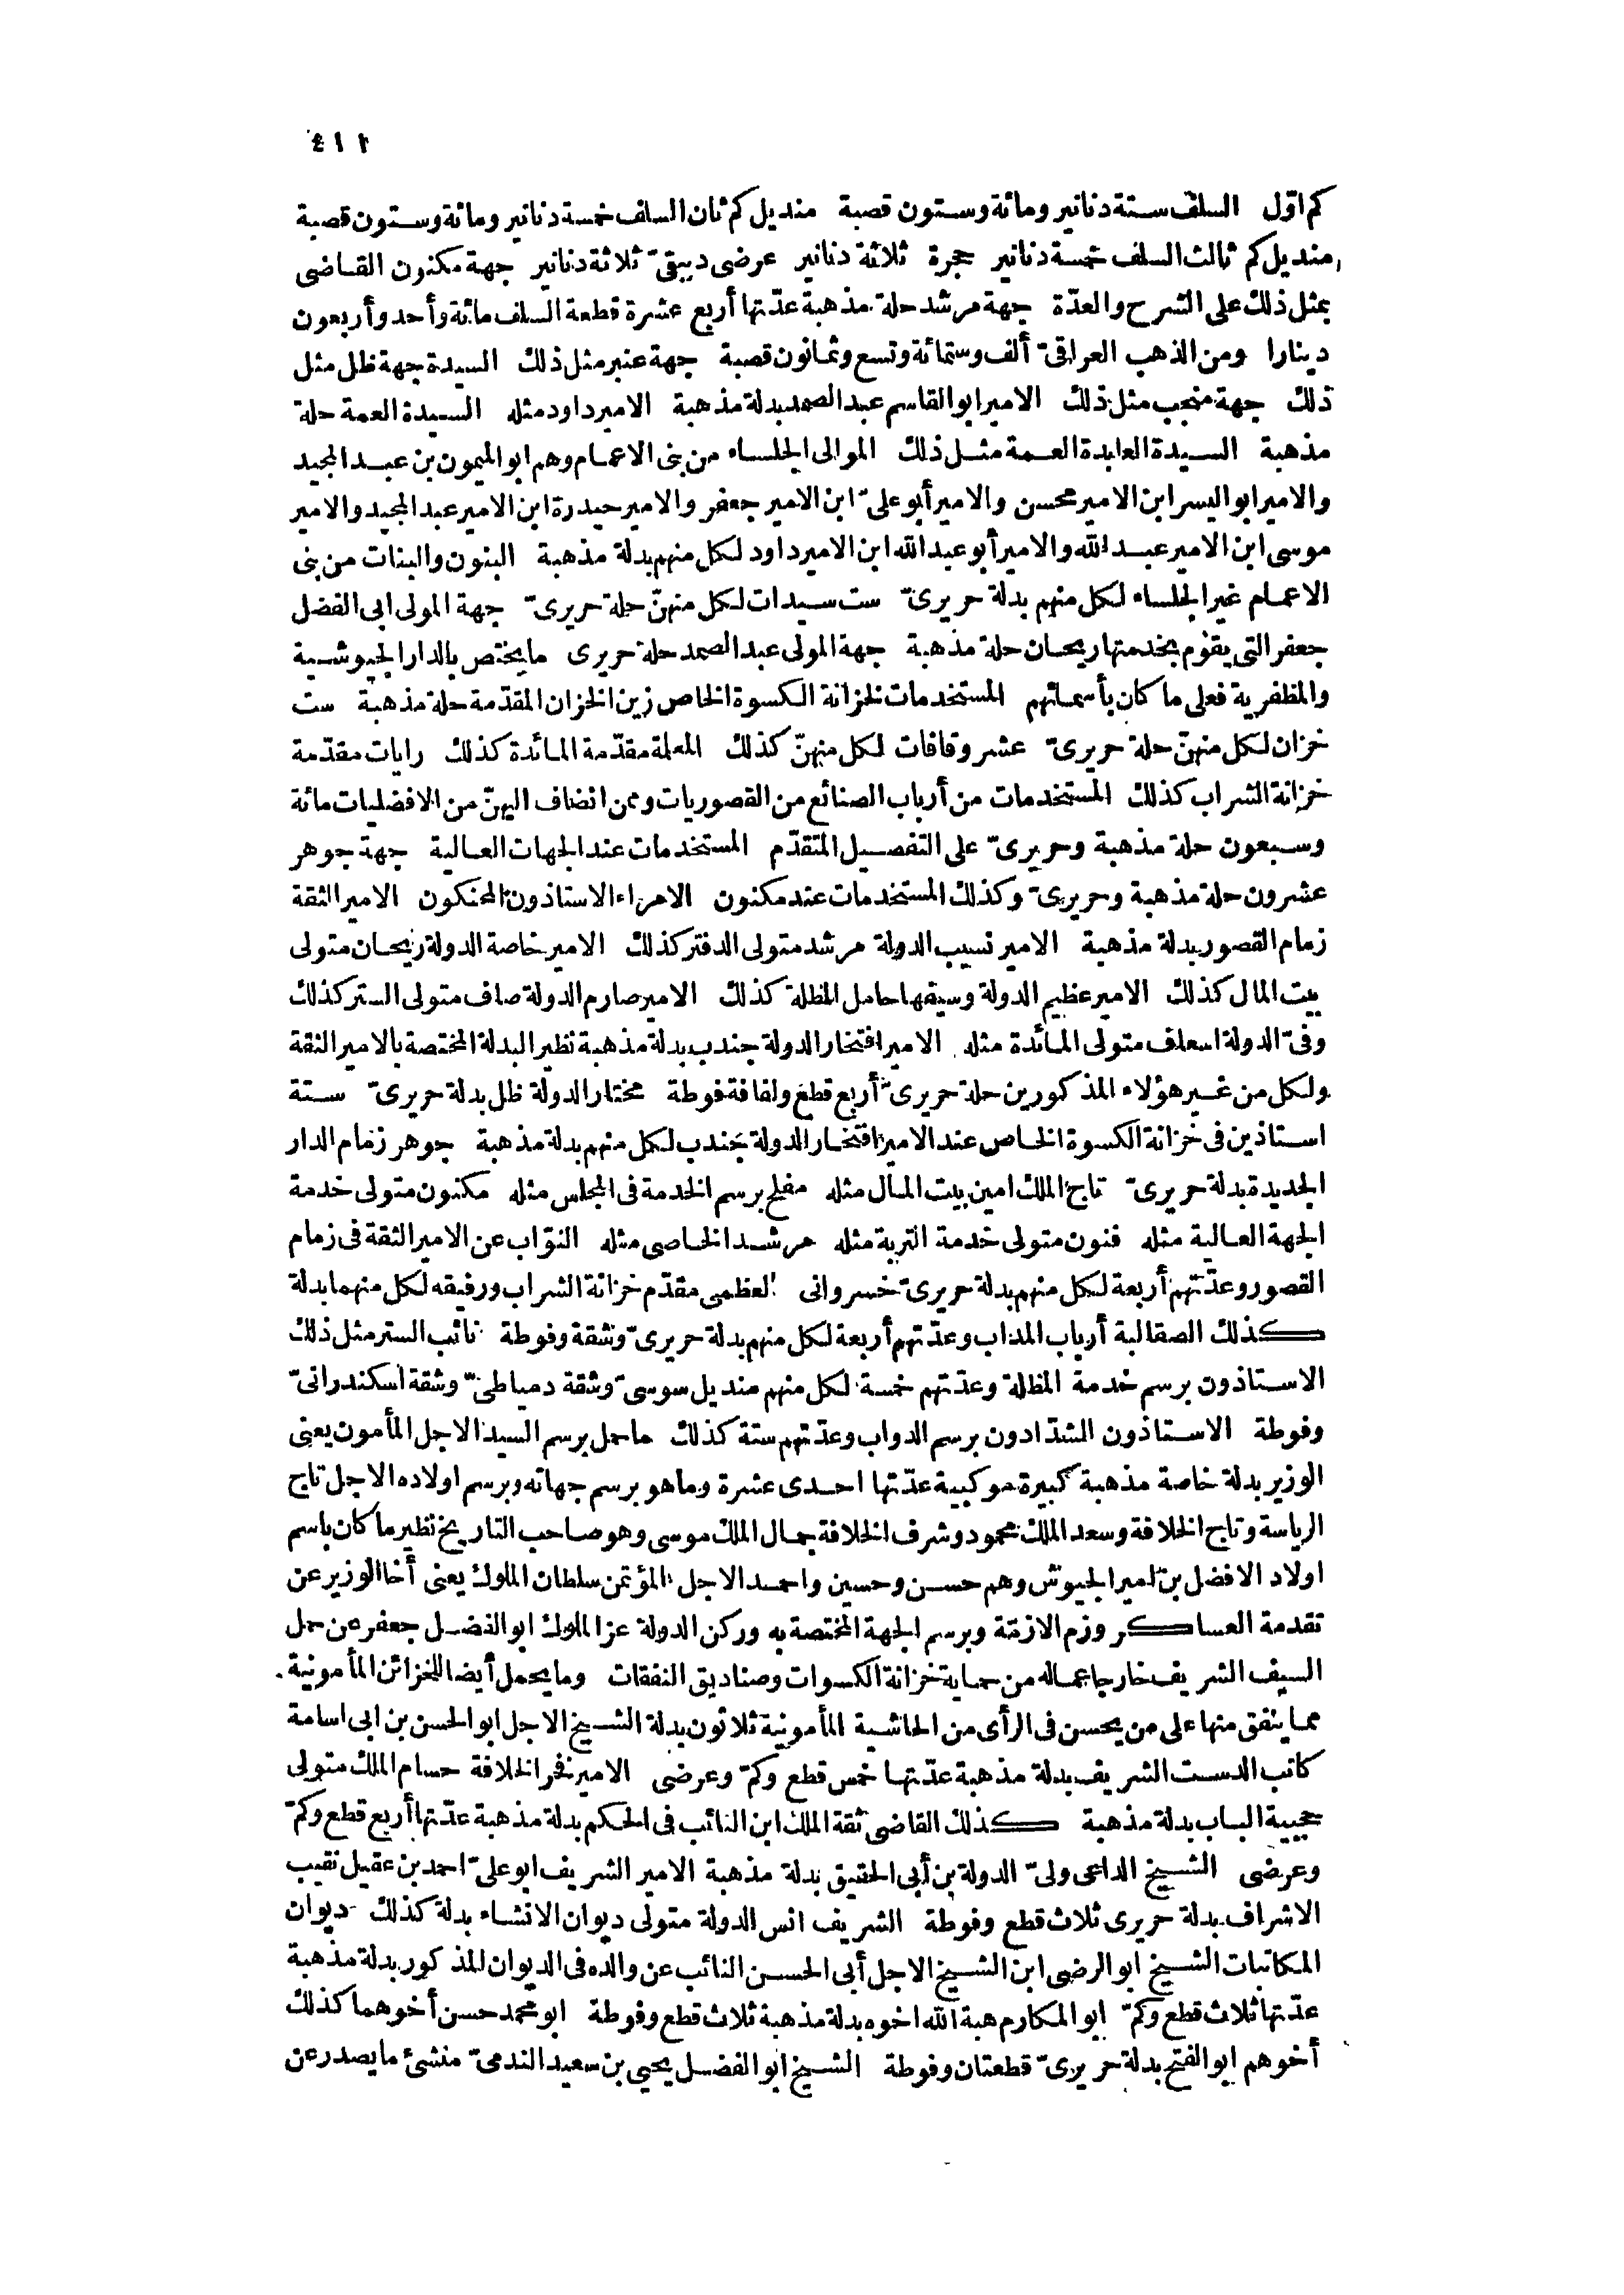 ٤١١
كم اوّل السلف ستة دنانير ومائة وستون قصبة منديل كم ثان السلف خمسة دنانير ومائة وستون قصبة
منديل كم ثالث السلف خمسة دنانير حجرة ثلاثة دنانير عرضى ديبقىّ ثلاثة دنانير جهة مكنون القاضى
بمثل ذلك على الشرح والعدّة جهة مرشد حلة مذهبة عدّتها أربع عشرة قطعة السلف مائة وأحد وأربعون
دينارا ومن الذهب العراقىّ ألف وستمائة وتسع وثمانون قصبة جهة عنبر مثل ذلك السيدة جهة ظل مثل
ذلك جهة منجب مثل ذلك الامير ابو القاسم عبد الصمد بدلة مذهبة الامير داود مثله السيدة العمة حلة
مذهبة السيدة العابدة العمة مثل ذلك الموالى الجلساء من بنى الاعمام وهم ابو الميمون بن عبد المجيد
والامير ابو اليسر ابن الامير محسن والامير أبو علىّ ابن الامير جعفر والامير حيدرة ابن الامير عبد المجيد والامير
موسى ابن الامير عبد الله والامير أبو عبد الله ابن الامير داود لكل منهم بدلة مذهبة البنون والبنات من بنى
الاعمام غير الجلساء لكل منهم بدلة حريرىّ ست سيدات لكل منهنّ حلة حريرىّ جهة المولى ابى الفضل
جعفر التى يقوم بخدمتها ريحان حلة مذهبة جهة المولى عبد الصمد حلة حريرى ما يختص بالدار الجيوشية
والمظفرية فعلى ما كان بأسمائهم المستخدمات لخزانة الكسوة الخاص زين الخزان المقدّمة حلة مذهبة ست
خزان لكل منهنّ حلة حريرىّ عشر وقافات لكل منهنّ كذلك المعلمة مقدّمة المائدة كذلك رايات مقدّمة
خزانة الشراب كذلك المستخدمات من أرباب الصنائع من القصوريات وممن انضاف اليهنّ من الافضليات مائة
وسبعون حلة مذهبة وحريرىّ على التفصيل المتقدّم المستخدمات عند الجهات العالية جهة جوهر
عشرون حلة مذهبة وحريرىّ وكذلك المستخدمات عند مكنون الامراء الاستاذون المحنكون الامير الثقة
زمام القصور بدلة مذهبة الامير نسيب الدولة مرشد متولى الدفتر كذلك الامير خاصة الدولة ريحان متولى
بيت المال كذلك الامير عظيم الدولة وسيفها حامل المظلة كذلك الامير صارم الدولة صاف متولى الستر كذلك
وفىّ الدولة اسعاف متولى المائدة مثله الامير افتخار الدولة جندب بدلة مذهبة نظير البدلة المختصة بالامير الثقة
ولكل من غير هؤلاء المذكورين حلة حريرىّ أربع قطع ولفافة فوطة مختار الدولة ظل بدلة حريرىّ ستة
استاذين فى خزانة الكسوة الخاص عند الامير افتخار الدولة جندب لكل منهم بدلة مذهبة جوهر زمام الدار
الجديدة بدلة حريرىّ تاج الملك امين بيت المال مثله مفلح برسم الخدمة فى المجلس مثله مكنون متولى خدمة
الجهة العالية مثله فنون متولى خدمة التربة مثله مرشد الخاصى مثله النوّاب عن الامير الثقة فى زمام
القصور وعدّتهم أربعة لكل منهم بدلة حريرىّ خسروانى العظمى مقدّم خزانة الشراب ورفيقه لكل منهما بدلة
كذلك الصقالبة أرباب المداب وعدّتهم أربعة لكل منهم بدلة حريرىّ وشقة وفوطة نائب الستر مثل ذلك
الاستاذون برسم خدمة المظلة وعدّتهم خمسة لكل منهم منديل سوسىّ وشقة دمياطىّ وشقة اسكندرانىّ
وفوطة الاستاذون الشدّادون برسم الدواب وعدّتهم ستة كذلك ما حمل برسم السيد الاجل المأمون يعنى
الوزير بدلة خاصة مذهبة كبيرة موكبية عدّتها احدى عشرة وما هو برسم جهاته وبرسم اولاده الاجل تاج
الرياسة وتاج الخلافة وسعد الملك محمود وشرف الخلافة جمال الملك موسى وهو صاحب التاريخ نظير ما كان باسم
اولاد الافضل بن امير الجيوش وهم حسن وحسين واحمد الاجل المؤتمن سلطان الملوك يعنى أخا الوزير عن
تقدمة العساكر وزم الازمّة وبرسم الجهة المختصة به وركن الدولة عز الملوك ابو الفضل جعفر عن حمل
السيف الشريف خارجا عماله من حماية خزانة الكسوات وصناديق النفقات وما يحمل أيضا للخزائن المأمونية
مما ينفق منها على من يحسن فى الرأى من الحاشية المأمونية ثلاثون بدلة الشيخ الاجل ابو الحسن بن ابى اسامة
كاتب الدست الشريف بدلة مذهبة عدّتها خمس قطع وكمّ وعرضى الامير فخر الخلافة حسام الملك متولى
حجبية الباب بدلة مذهبة كذلك القاضى ثقة الملك ابن النائب فى الحكم بدلة مذهبة عدّتها أربع قطع وكمّ
وعرضى الشيخ الداعى ولىّ الدولة بن أبى الحقيق بدلة مذهبة الامير الشريف ابو علىّ احمد بن عقيل نقيب
الاشراف بدلة حريرى ثلاث قطع وفوطة الشريف انس الدولة متولى ديوان الانشاء بدلة كذلك ديوان
المكاتبات الشيخ ابو الرضى ابن الشيخ الاجل أبى الحسن النائب عن والده فى الديوان المذكور بدلة مذهبة
عدّتها ثلاث قطع وكمّ ابو المكارم هبة الله اخوه بدلة مذهبة ثلاث قطع وفوطة ابو محمد حسن أخوهما كذلك
أخوهم ابو الفتح بدلة حريرىّ قطعتان وفوطة الشيخ ابو الفضل يحيى بن سعيد الندمىّ منشئ ما يصدر عن